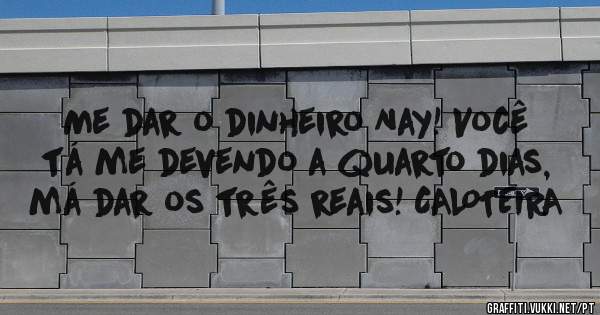 ME DAR O DINHEIRO NAY! VOCÊ
TÁ ME DEVENDO A QUARTO DIAS,
MÁ DAR OS TRÊS REAIS! CALOTEIRA
GRAFFITI.VUKKI.NET/PT